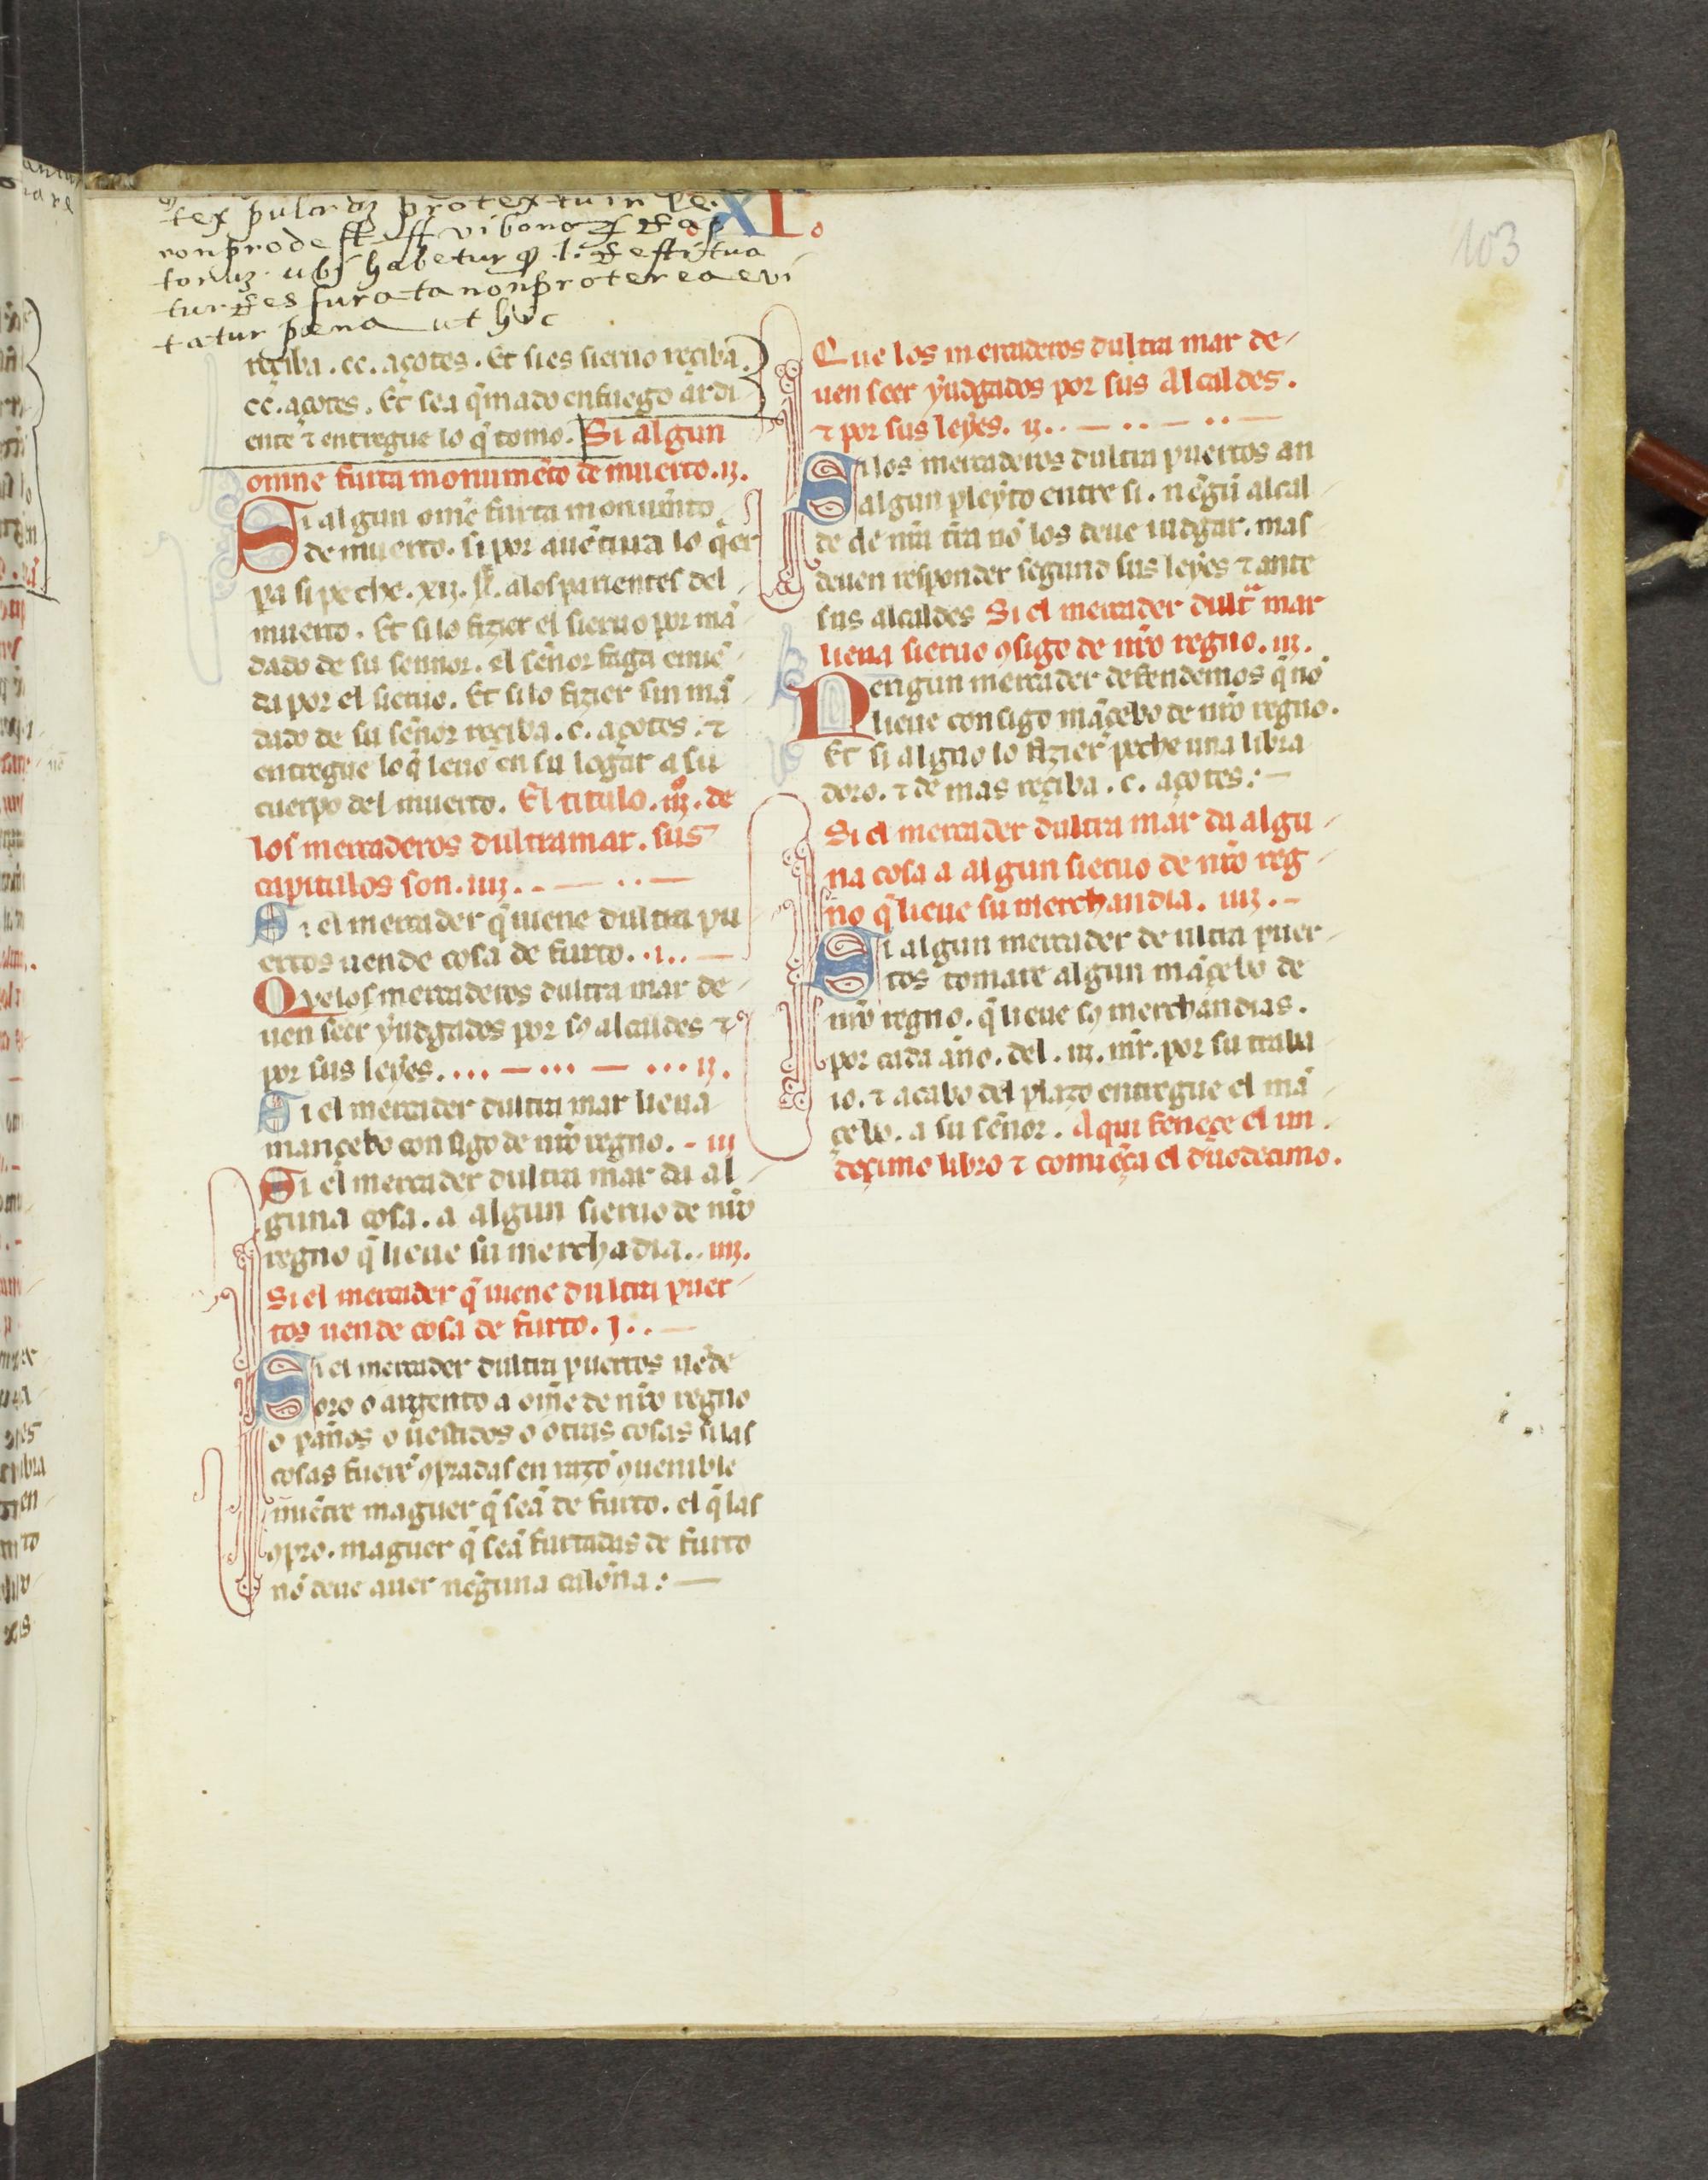 XI.
103
reçiba .cc. açotes. Et si es sieruo reçiba.
cc. açotes. Et sea q̃mado en fuego ardi
ente ⁊ entregue lo q̃ tomo. Si algun
omne furta monumẽto de muerto .ij.
Si algun omẽ furta monum̃to
de muerto. si por auẽtura lo q̃er
pa si peche .xij. ss̃. a los parientes del
muerto. Et si lo fizier el sieruo por mã
dado de su sennor. el señor faga emiẽ
da por el sieruo. Et si lo fizier sin mã
dado de su señor reçiba .c. açotes. ⁊
entregue lo q̃ leuo en su logar a su
cuerpo del muerto. El titulo .iij. de
los mercaderos dultramar. sus
capitulos son .iiij.
Si el mercader q̃ uiene dultra pu
ertos uende cosa de furto. .i.
Que los mercaderos dultra mar de
uen seer yudgados por sꝯ alcaldes ⁊
por sus leyes. ij.
Si el mercader dultra mar lieua
mançebo consigo de nr̃o regno. iij
Si el mercader dultra mar da al
guna cosa. a algun sieruo de nr̃o
regno q̃ lieue su merchadia.. iiij.
Si el mercader q̃ uiene dultra puer
tos uende cosa de furto. j.
Si el mercader dultra puertos uẽde
oro o argento a om̃e de nr̃o regno
o paños o uestidos o otras cosas si las
cosas fuerẽ ꝯpradas en razõ ꝯuenible
miẽtre maguer q̃ seã de furto. el q̃ las
ꝯpro. maguer q̃ seã furtadas de furto
nõ deue auer nẽguna caloña:
Que los mercaderos dultra mar de
uen seer yudgados por sus Alcaldes.
⁊ por sus leyes. ij.
Si los mercaderos dultra puertos an
algun pleyto entre si. nẽgũ alcal
de de nr̃a tr̃a nõ los deue iudgar. mas
deuen responder segund sus leyes ⁊ ante
sus alcaldes Si el mercader dultª mar
lieua sieruo ꝯsigo de nr̃o regno. iij.
Nengun mercader defendemos q̃ nõ
lieue consigo mãçebo de nr̃o regno.
Et si alguno lo fizier peche una libra
doro. ⁊ de mas reçiba .c. açotes:
Si el mercader dultra mar da algu
na cosa a algun sieruo de nr̃o reg
no q̃ lieue su merchandia. iiij.
Si algun mercader de ultra puer
tos tomare algun mãçebo de
nr̃o regno. q̃ lieue sꝯ merchandias.
por cada año. del .iij. mr̃. por su traba
io. ⁊ acabo del plazo entregue el mã
çebo. a su señor. Aqui feneçe el un
deçimo libro ⁊ comiẽça el duodecimo.